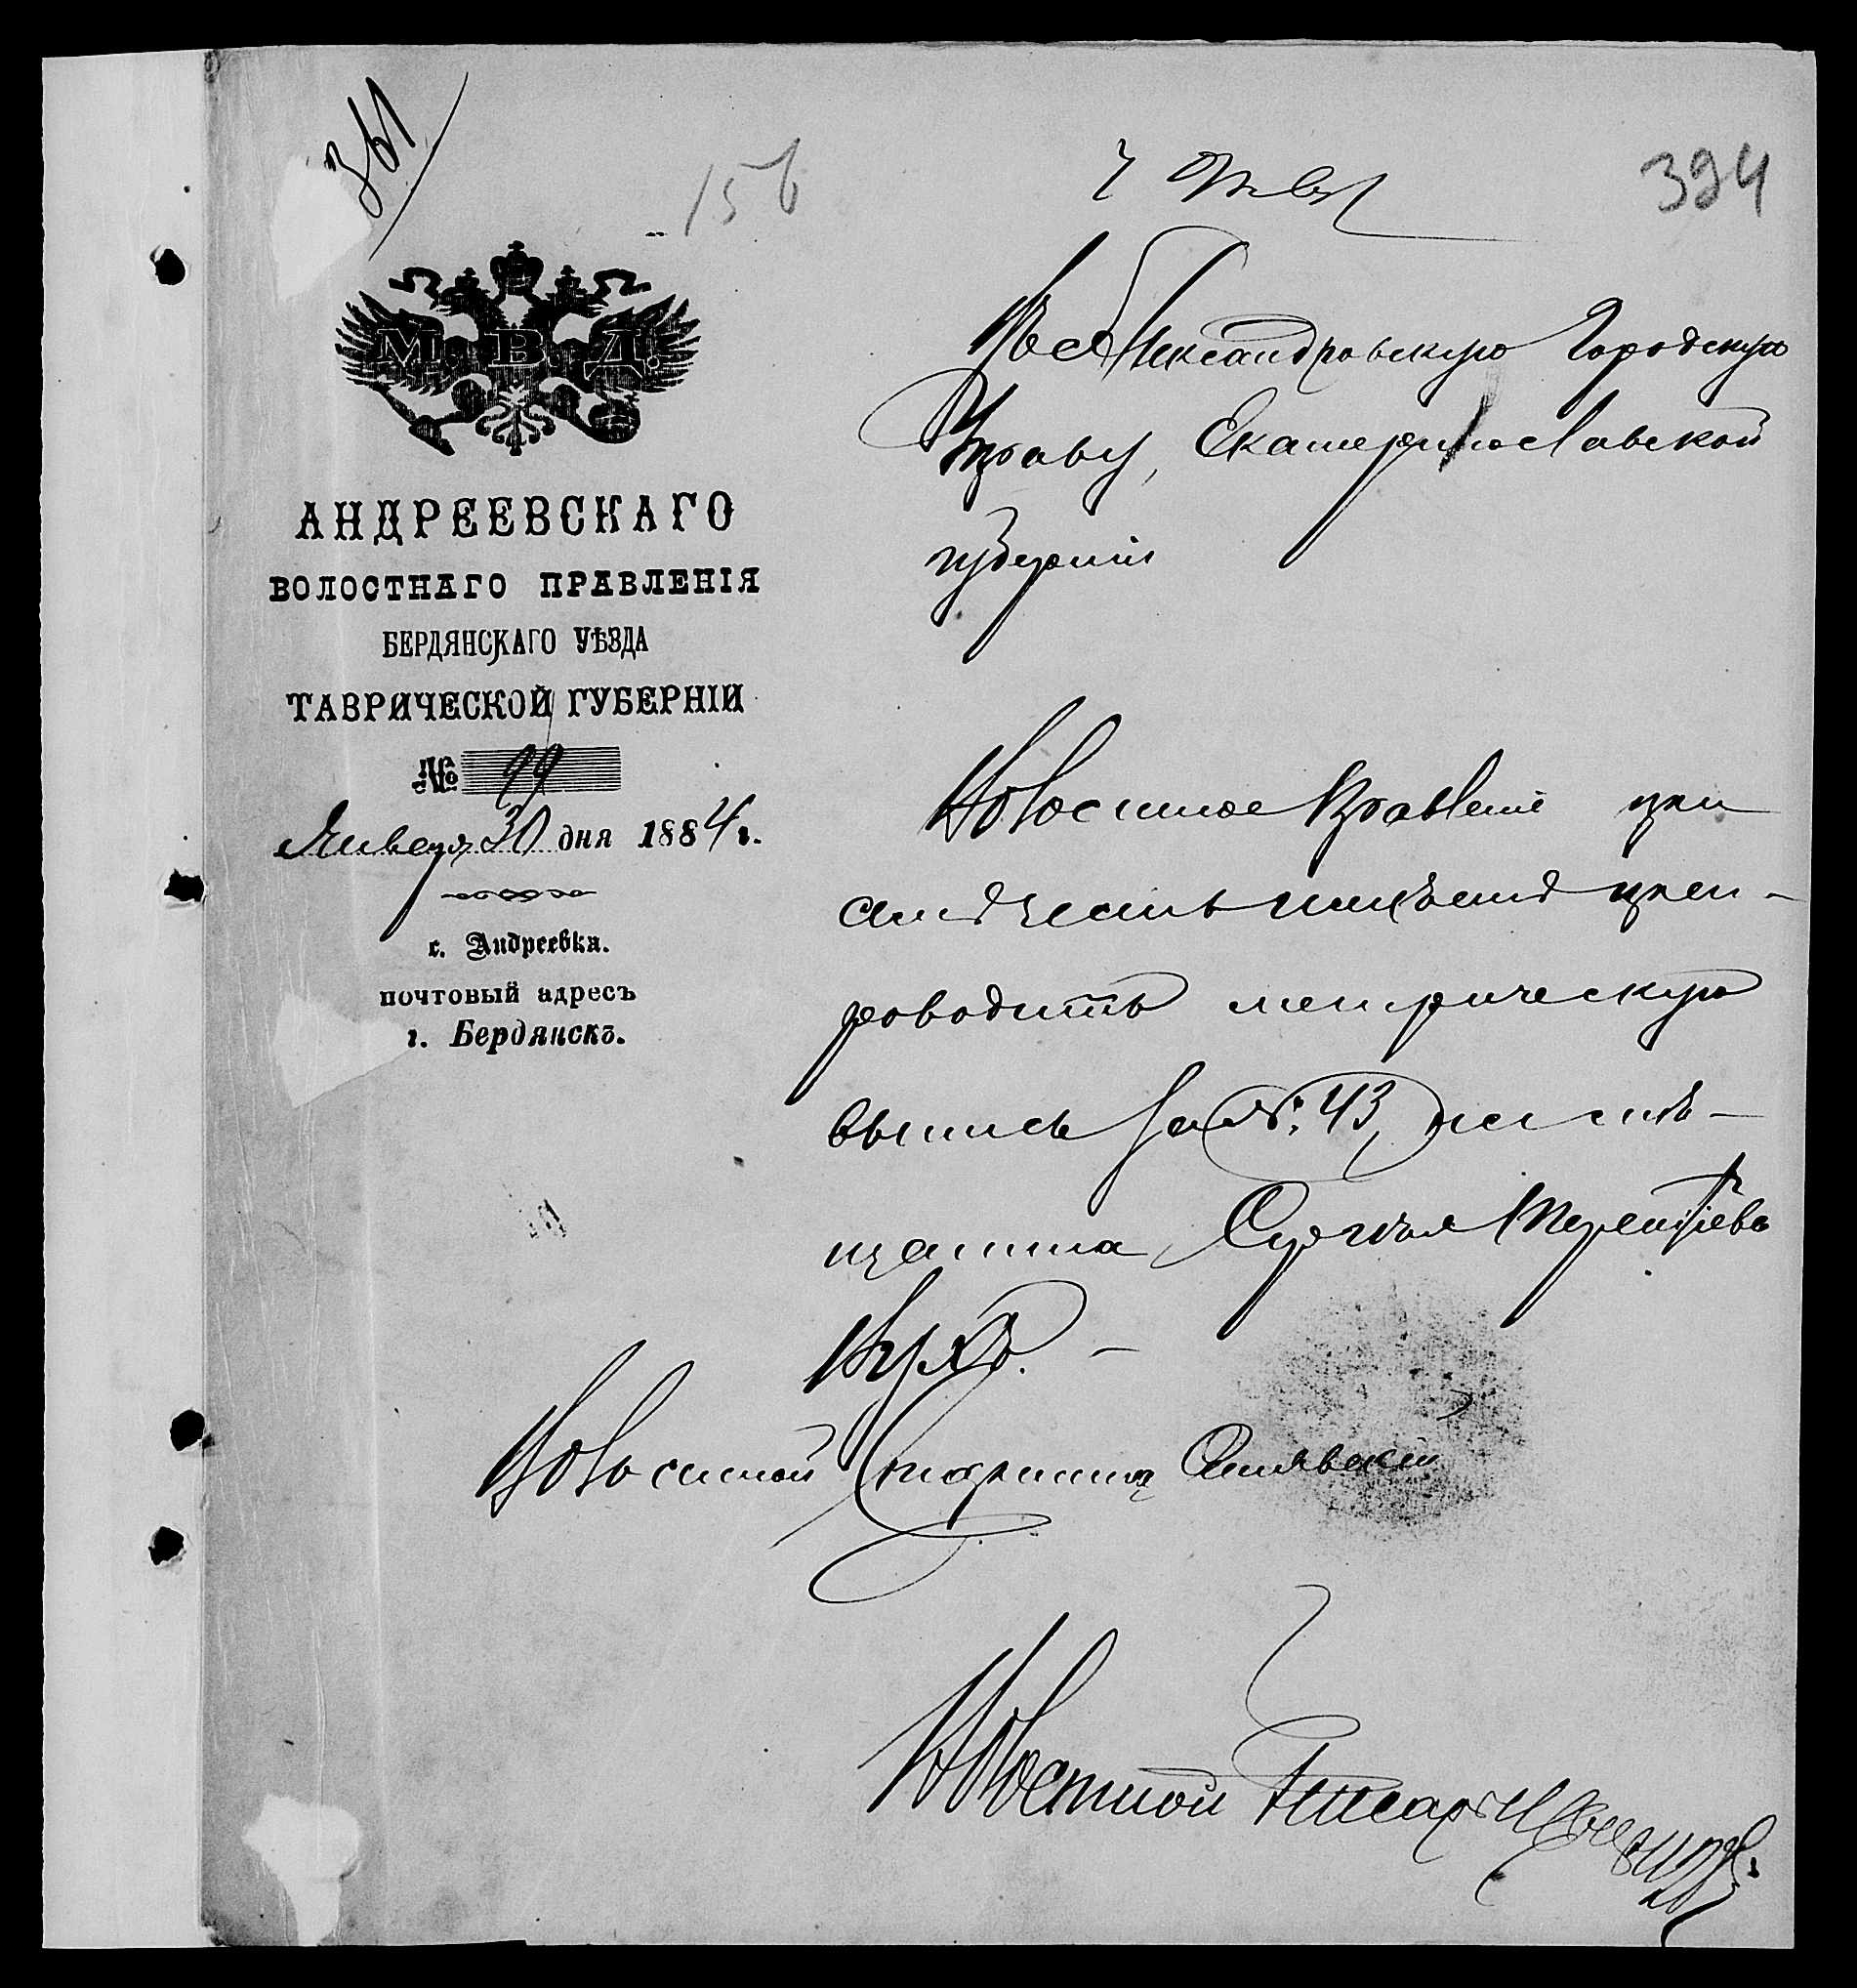 361
156
394
М. В. Д.
АНДРЕЕВСКАГО
ВОЛОСТНАГО ПРАВЛЕНІЯ
БЕРДЯНСКАГО УѢЗДА
ТАВРИЧЕСКОЙ ГУБЕРНІИ
№ 99
Января 30 дня 1884 г.
с. Андреевка.
почтовый адресъ
г. Бердянскъ.
Въ Александровскую Городскую
Управу, Екатеринославской
губерніи
Волостное Правленіе при
семъ честь имѣетъ преп-
роводить метрическую
выпись за №. 43, на мѣ-
щанина Сергѣя Терентіева
Волостной Старшина
Волостной Писарь